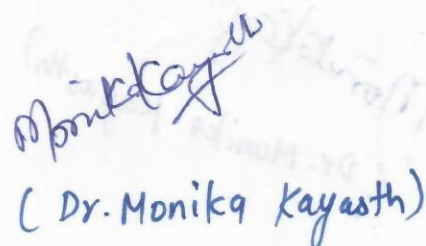 Monika Kayasth
( Dr. Monika Kayasth)